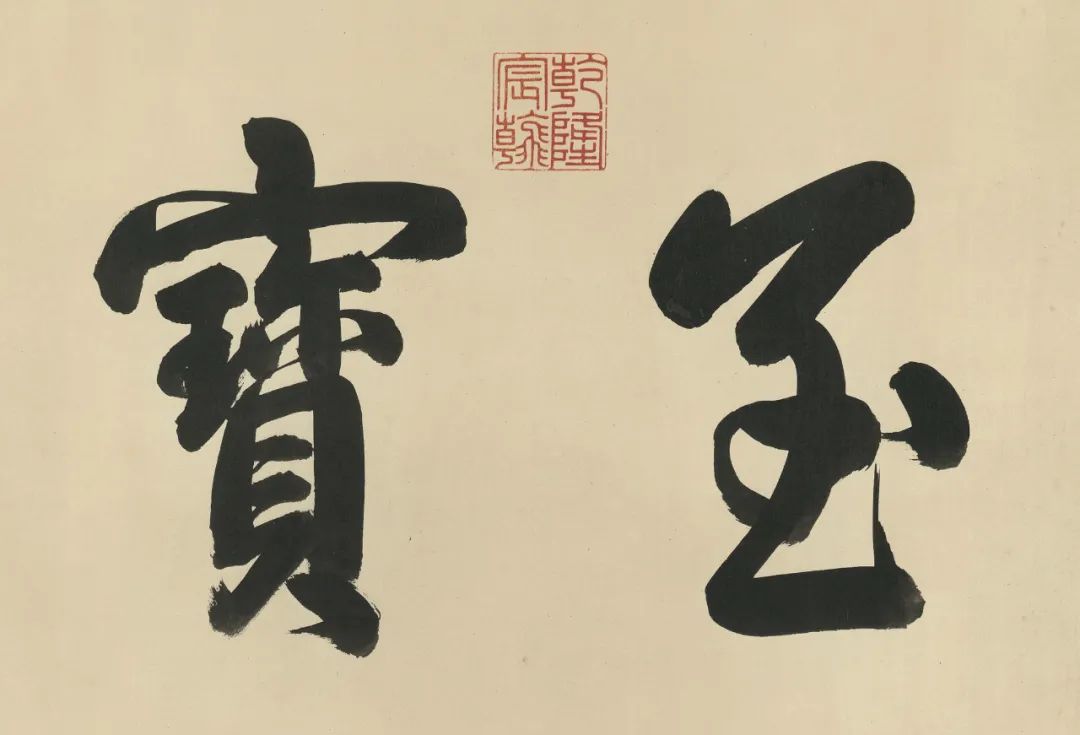 至寶
乾隆宸翰